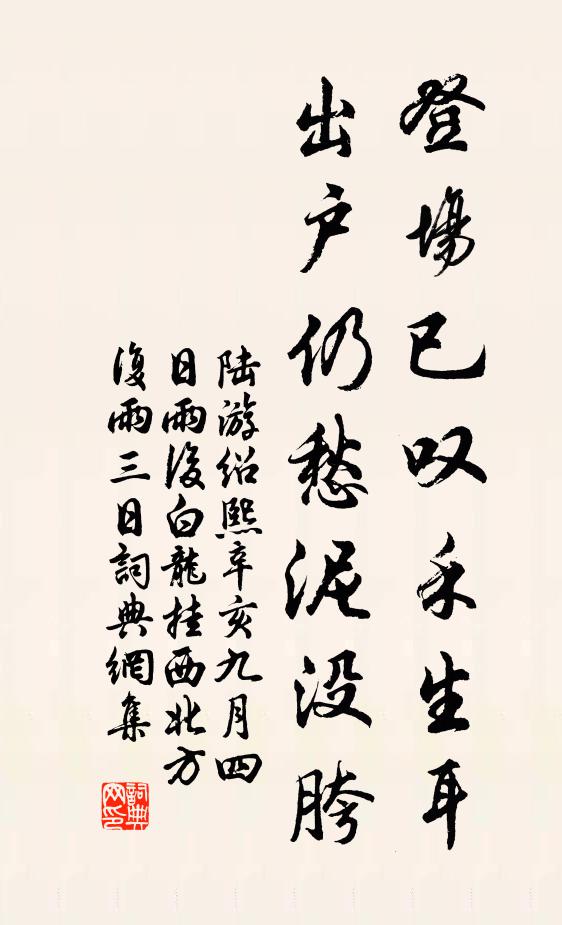 登場已叹禾生耳
出户仍愁泥没胯
陆游绍熙辛亥九月四
日雨後白龍挂西北方
復雨三日詞典網集
詞典
网印